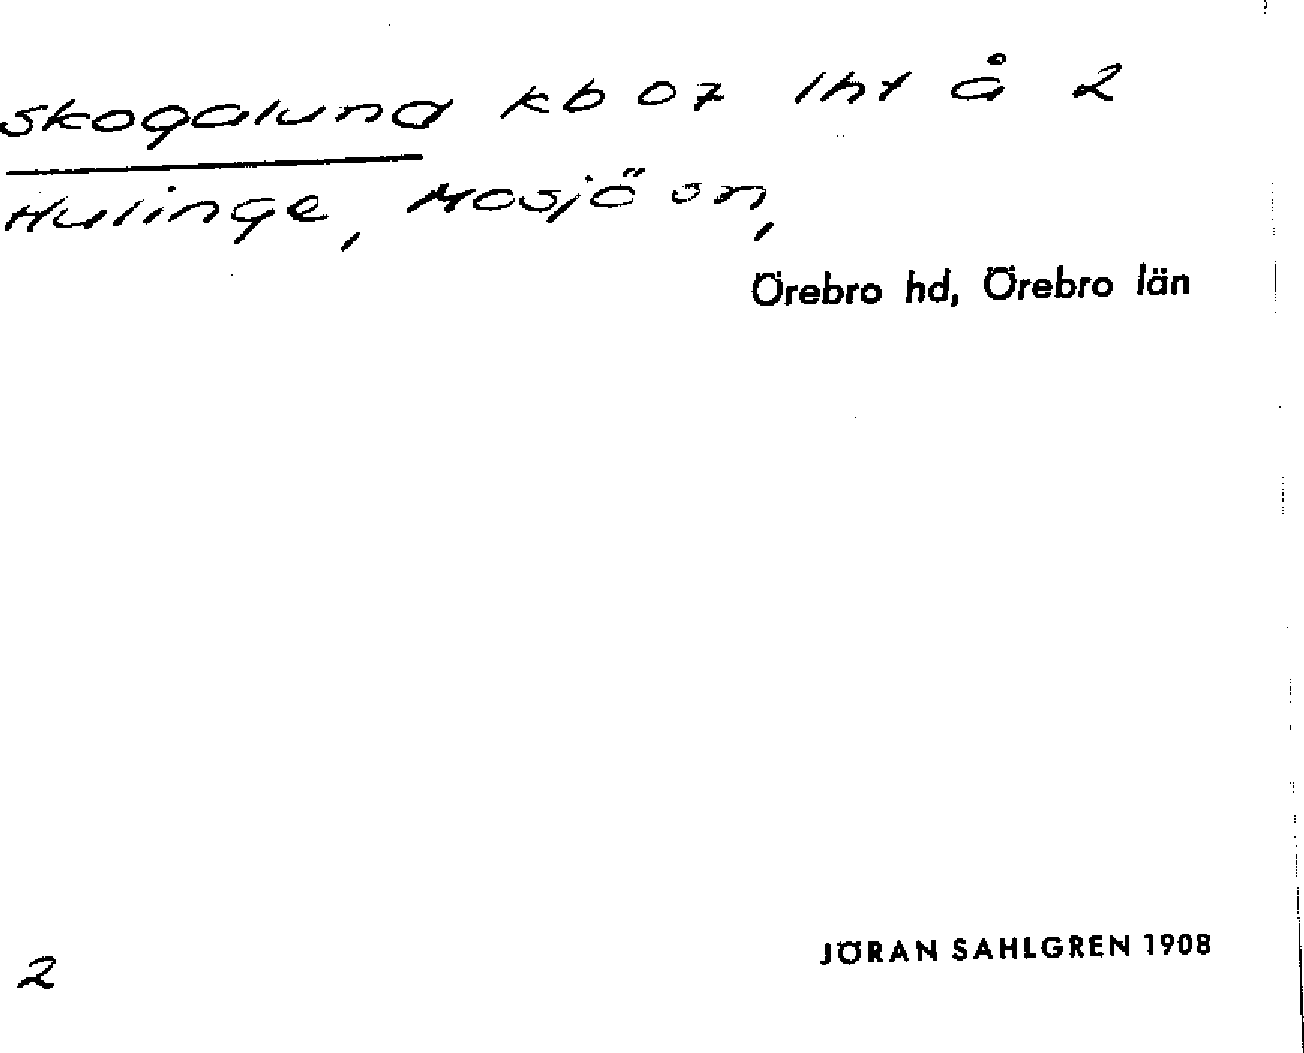 Skogalund kb 07 lht å 2
Hulinge, Mosjö sn,
Örebro hd, Örebro län
JÖRAN SAHLGREN 1908
2